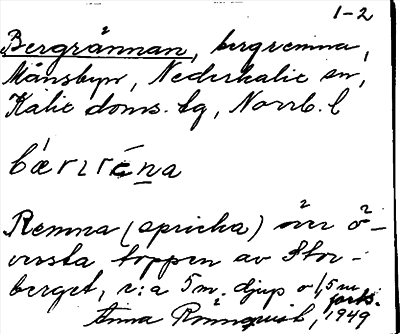 1-2
Bergrännan, bergremna,
Månsbyn, Nederkalix sn,
Kalix doms.lg, Norrb. l
Remna (spricka) över ö-
versta toppen av Stor-
berget, c:a 5 m. djup o 1,5 m
forts.
Anna Rönnqvist, 1949